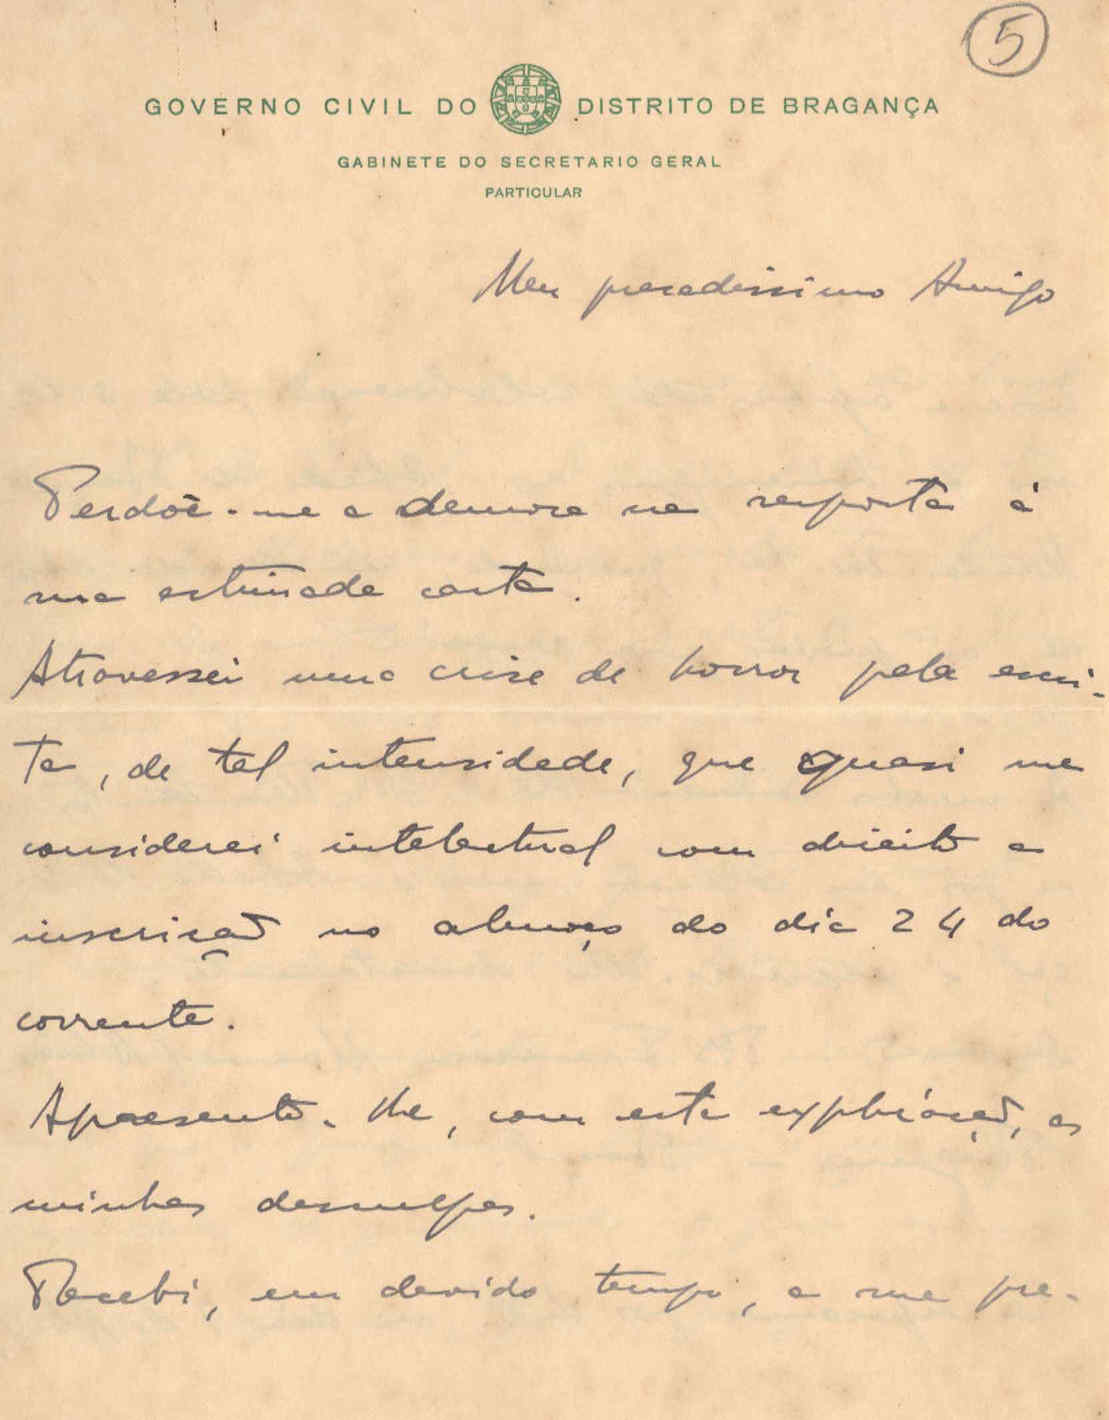 5
GOVERNO CIVIL DO DISTRITO DE BRAGANÇA
GABINETE DO SECRETARIO GERAL
PARTICULAR
Meu presadissimo Amigo
Perdôe-me a demora na resposta á
sua estimada carta.
Atravessei uma crise de horror pela escri-
ta, de tal intensidade, que quasi me
considerei intelectual com direito a
inscrição no almoço do dia 24 do
corrente.
Apresento-lhe, com esta explicação, as
minhas desculpas.
Recebi, em devido tempo, a sua pre-